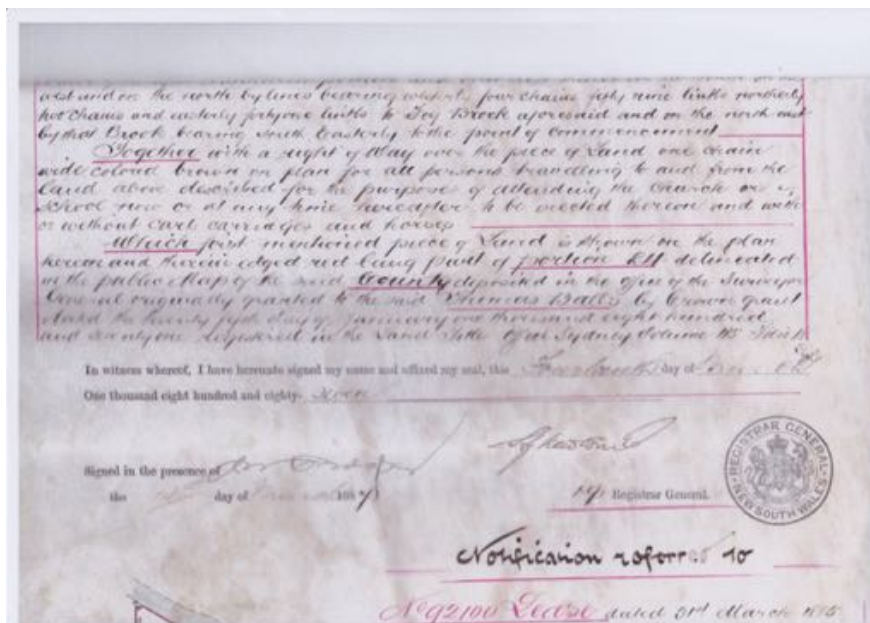 west and on the north by lines bearing westerly four chains forty nine links northerly
two chains and easterly forty one links to Foy Brook aforesaid and on the north east
by that Brook bearing South Easterly to the point of commencement
Together with a right of Way over the piece of Land one chain
wide colored brown on plan for all persons travelling to and from the
land above described for the purpose of attending the Church or
School now or at any time hereafter to be erected thereon and with
or without cart carriages and horses
Which first mentioned piece of Land is shown on the plan
hereon and therein edged red being part of portion delineated
in the public Map of the said County deposited in the office of the Surveyor
General originally granted to the said Thomas by Crown grant
dated the twenty fifth day of January one thousand eight hundred
and seventy one registered in the Land Title Office Sydney Volume
In witness whereof, I have hereunto signed my name and affixed my seal, this day of
One thousand eight hundred and eighty-
Signed in the presence of
the day of 188
Registrar General.
REGISTRAR GENERAL
NEW SOUTH WALES
Notification referred to
No 92100 Lease dated 31st March